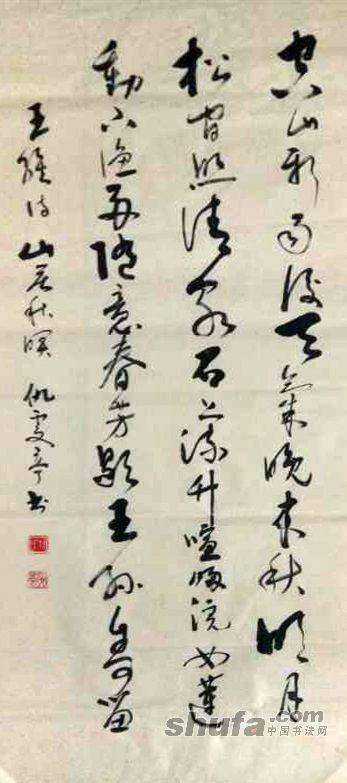 空山新雨后天气晚来秋明月
松间照清泉石上流竹喧归浣女莲
动下渔舟随意春芳歇王孙自可留
王维诗山居秋暝 仇雯亭书
shufa.com
中国书法网